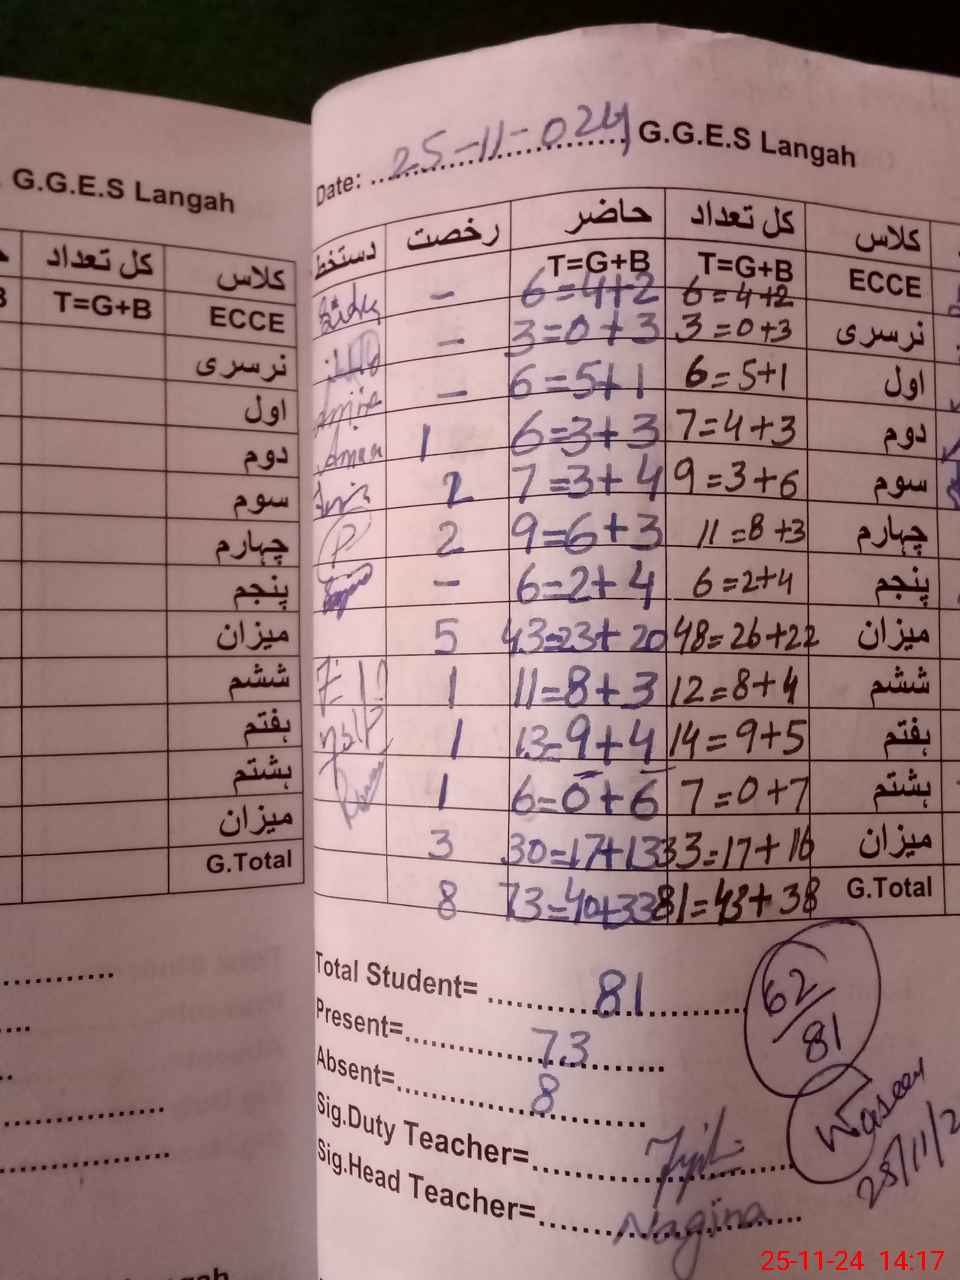 G.G.E.S Langah
کلاس کل تعداد
ECCE T=G+B
نرسری
اول
دوم
سوم
چہارم
پنجم
میزان
ششم
ہفتم
ہشتم
میزان
G.Total
Date: 25-11-024 G.G.E.S Langah
کلاس کل تعداد حاضر رخصت دستخط
T=G+B T=G+B
ECCE 6=4+2 6=4+2 -
نرسری 3=0+3 3=0+3 -
اول 6=5+1 6=5+1 -
دوم 7=4+3 6=3+3 1
سوم 9=3+6 7=3+4 2
چہارم 11=8+3 9=6+3 2
پنجم 6=2+4 6=2+4 -
میزان 48=26+22 43=23+20 5
ششم 12=8+4 11=8+3 1
ہفتم 14=9+5 13=9+4 1
ہشتم 7=0+7 6=0+6 1
میزان 33=17+16 30=17+13 3
G.Total 81=43+38 73=40+33 8
Total Student= 81
62/81
Present= 73
Absent= 8
Waseem
Sig.Duty Teacher=
Sig.Head Teacher= Nagina
25-11-24 14:17